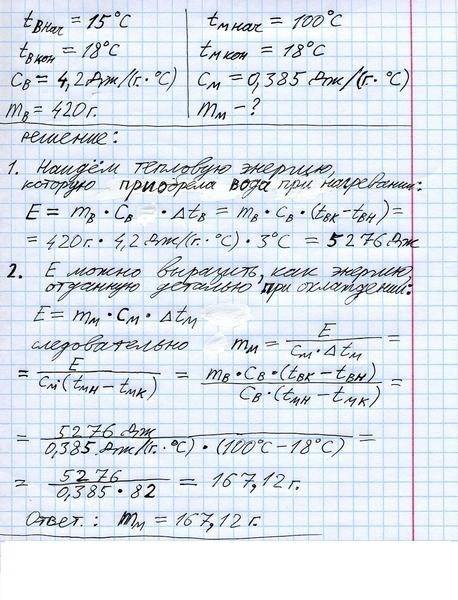 tВнач = 15°С
tМнач = 100°С
tВкон = 18°С
tМкон = 18°С
СВ = 4,2 Дж/(г.·°С)
СМ = 0,385 Дж/(г.·°С)
mВ = 420 г.
mМ - ?
решение:
1. Найдём тепловую энергию,
которую приобрела вода при нагревании:
E = mВ · СВ · ΔtВ = mВ · СВ · (tВК - tВН) =
= 420г. · 4,2 Дж/(г.·°С) · 3°С = 5276 Дж
2. E можно выразить, как энергию,
отданную деталью при охлаждении:
E = mМ · СМ · ΔtМ
следовательно mМ = E / СМ · ΔtМ =
= E / СМ · (tМН - tМК) = mВ · СВ · (tВК - tВН) / СВ · (tМН - tМК) =
= 5276 Дж / 0,385 Дж/(г.·°С) · (100°С - 18°С) =
= 5276 / 0,385 · 82 = 167,12 г.
Ответ.: mМ = 167,12 г.